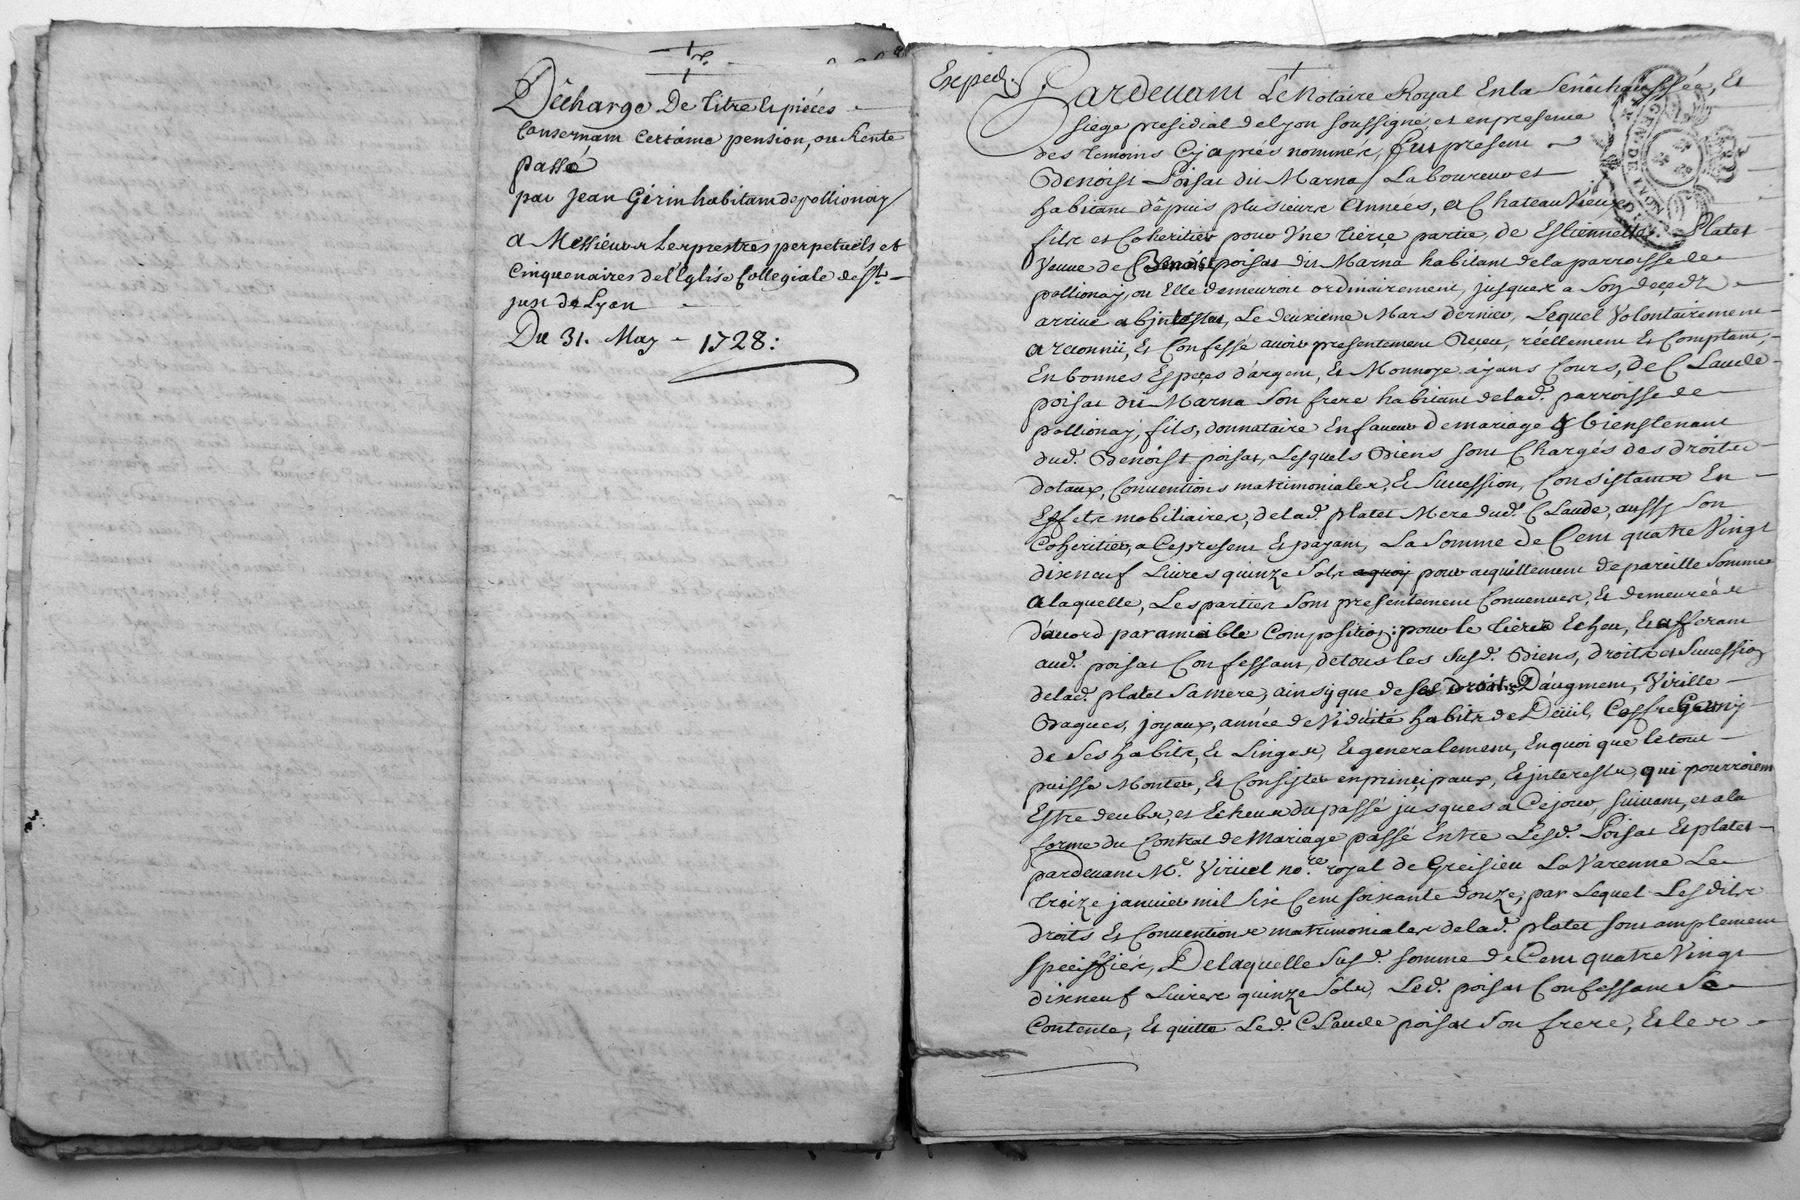 Dêcharge De titre Et piéces
Consernam Certaine pension, ou Rente
passé
par Jean Gérin habitant de pollionay
a Messieurs Les prestres perpetuels et
Cinquenaires de l'Eglise Collegiale de St.
just de Lyon
Du 31. May - 1728:
Exped.
Pardevant Le Notaire Royal En la Senêchaussée, Et
siege presidial de Lyon soussigné et en presence
des temoins Cy apres nommés, fut present
Benoist Poisat dit Marna Laboureur et
habitant dêpuis plusieurs Années, a Chateau Vieux
fils et Coheritier pour Une tierçe partie, de Estiennette Platet
Veuve de Benoist poisat dit Marna habitant de la parroisse de
pollionay, ou Elle demeuroit ordinairement, jusques a Son decedz
arrivé abjntestat, Le deuxieme Mars dernier, Lequel Volontairement
a reconnü, Et Confessé avoir presentement Reçeu, réellement Et Comptant,
En bonnes Espeçes d'argent, Et Monnoye ayant Cours, de Claude
poisat dit Marna Son frere habitant de lad. parroisse de
pollionay, fils, donnataire En faveur de mariage & bienstenant
dud. Benoist poisat, Lesquels Biens sont Chargés des droits
dotaux, Conventions matrimoniales, Et Succession, Consistant En
Effets mobiliaires, de lad. platet Mere dud. Claude, aussy Son
Coheritier, a Ce present Et payant, La Somme de Cent quatre Vingt
dixneuf Livres quinze Sols a quoy pour acquittement de pareille Somme
a laquelle, Les parties Sont presentement Convenues, Et demeurées
d'accord par amiable Composition: pour le tiers Echeu, Et afferant
aud. poisat Confessant, de tous les susd. Biens, droits et Succession
de lad. platet Sa mere, ainsy que de ses droits D'augment, Virille
Bagues, joyaux, année de Viduité habits de Deüil, Coffre Garny
de Ses habits, Et Linges, Et generalement, En quoi que le tout
puisse Monter, Et Consister en prinçipaux, Et jnterests, qui pourroient
Estre deubs, et Echeus du passé jusques a Ce jour, suivant, et a la
forme du Contrat de Mariage passé Entre Lesd. Poisat Et platet
pardevant Me. Viricel nore. royal de Greisieu La Varenne Le
treize janvier mil Six Cent soixante douze, par Lequel Lesdits
droits Et Conventions matrimoniales de lad. platet sont amplement
speciffiés, De laquelle Susd. somme de Cent quatre Vingt
dixneuf Livres quinze Sols, Led. poisat Confessant Se
Contente, Et quitte Led. Claude poisat Son frere, Et les